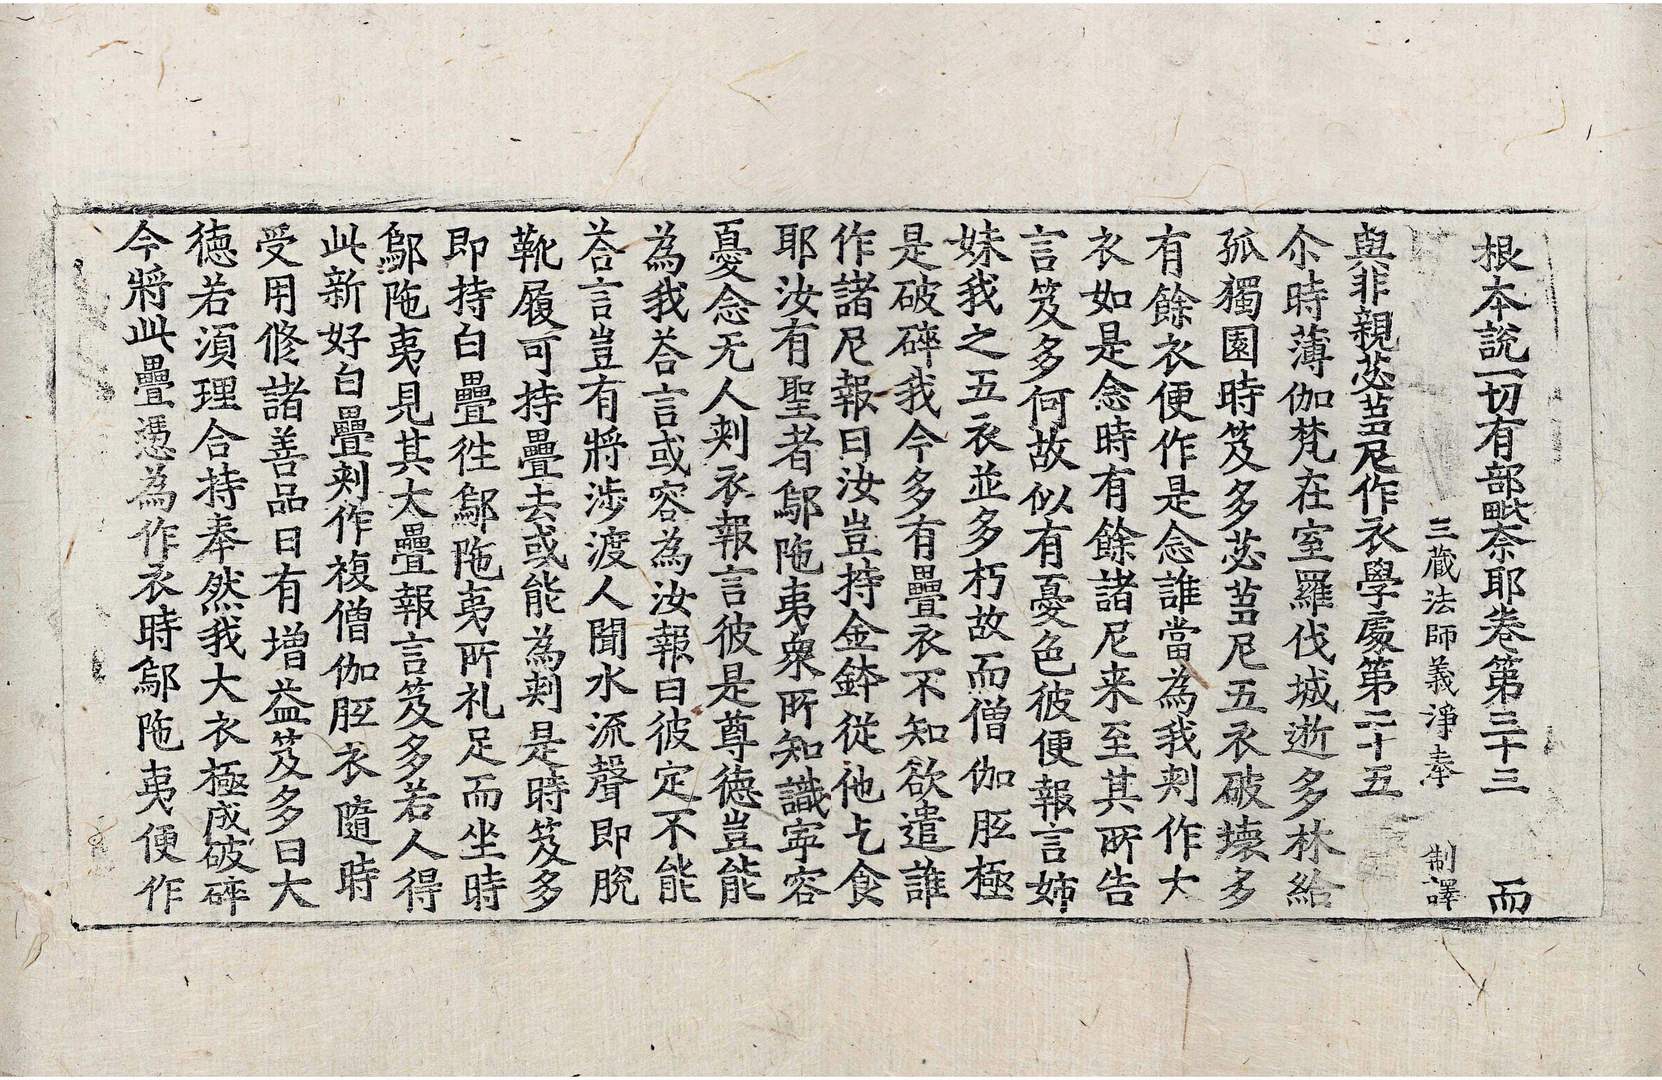 根本說一切有部毗奈耶卷第三十三 而
三藏法師義淨奉 制譯
與非親苾芻尼作衣學處第二十五
尒時薄伽梵在室羅伐城逝多林給
孤獨園時笈多苾芻尼五衣破壞多
有餘衣便作是念誰當為我刾作大
衣如是念時有餘諸尼来至其所告
言笈多何故似有憂色彼便報言姉
妹我之五衣並多朽故而僧伽胝極
是破碎我今多有疊衣不知欲遣誰
作諸尼報曰汝豈持金鉢從他乞食
耶汝有聖者鄔陁夷衆所知識寧容
憂念无人刾衣報言彼是尊德豈能
為我荅言或容為汝報曰彼定不能
荅言豈有將渉渡人聞水流聲即脫
靴履可持疊去或能為刾是時笈多
即持白疊徃鄔陁夷所礼足而坐時
鄔陁夷見其大疊報言笈多若人得
此新好白疊刾作複僧伽胝衣隨時
受用修諸善品日有增益笈多曰大
德若須理合持奉然我大衣極成破碎
今將此疊憑為作衣時鄔陁夷便作